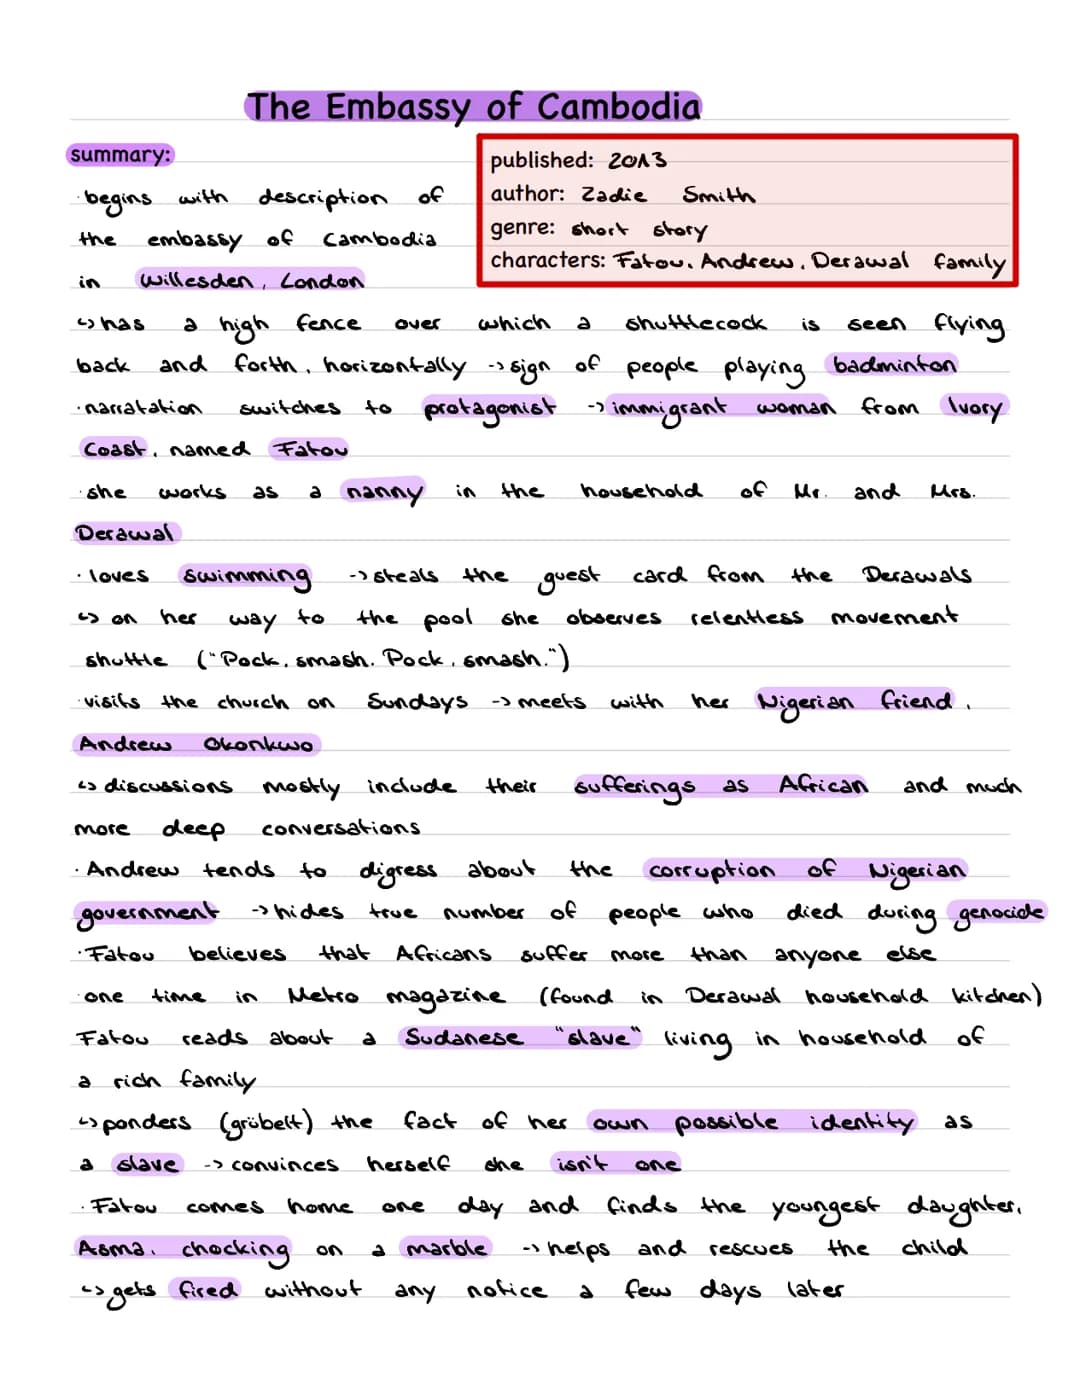 The Embassy of Cambodia
summary:
published: 2013
author: Zadie Smith
genre: short story
characters: Fatou, Andrew, Derawal family
· begins with description of
the embassy of Cambodia
in Willesden, London
↳ has a high fence over which a shuttlecock is seen flying
back and forth, horizontally -> sign of people playing badminton
· narratation switches to protagonist -> immigrant woman from Ivory
Coast, named Fatou
· she works as a nanny in the household of Mr. and Mrs.
Derawal
· loves swimming -> steals the guest card from the Derawals
↳ on her way to the pool she observes relentless movement
shuttle ("Pock, smash. Pock, smash.")
· visits the church on Sundays -> meets with her Nigerian friend,
Andrew Okonkwo
↳ discussions mostly include their sufferings as African and much
more deep conversations
· Andrew tends to digress about the corruption of Nigerian
government -> hides true number of people who died during genocide
· Fatou believes that Africans suffer more than anyone else
· one time in Metro magazine (found in Derawal household kitchen)
Fatou reads about a Sudanese "slave" living in household of
a rich family
↳ ponders (grübelt) the fact of her own possible identity as
a slave -> convinces herself she isn't one
· Fatou comes home one day and finds the youngest daughter,
Asma, chocking on a marble -> helps and rescues the child
↳ gets fired without any notice a few days later